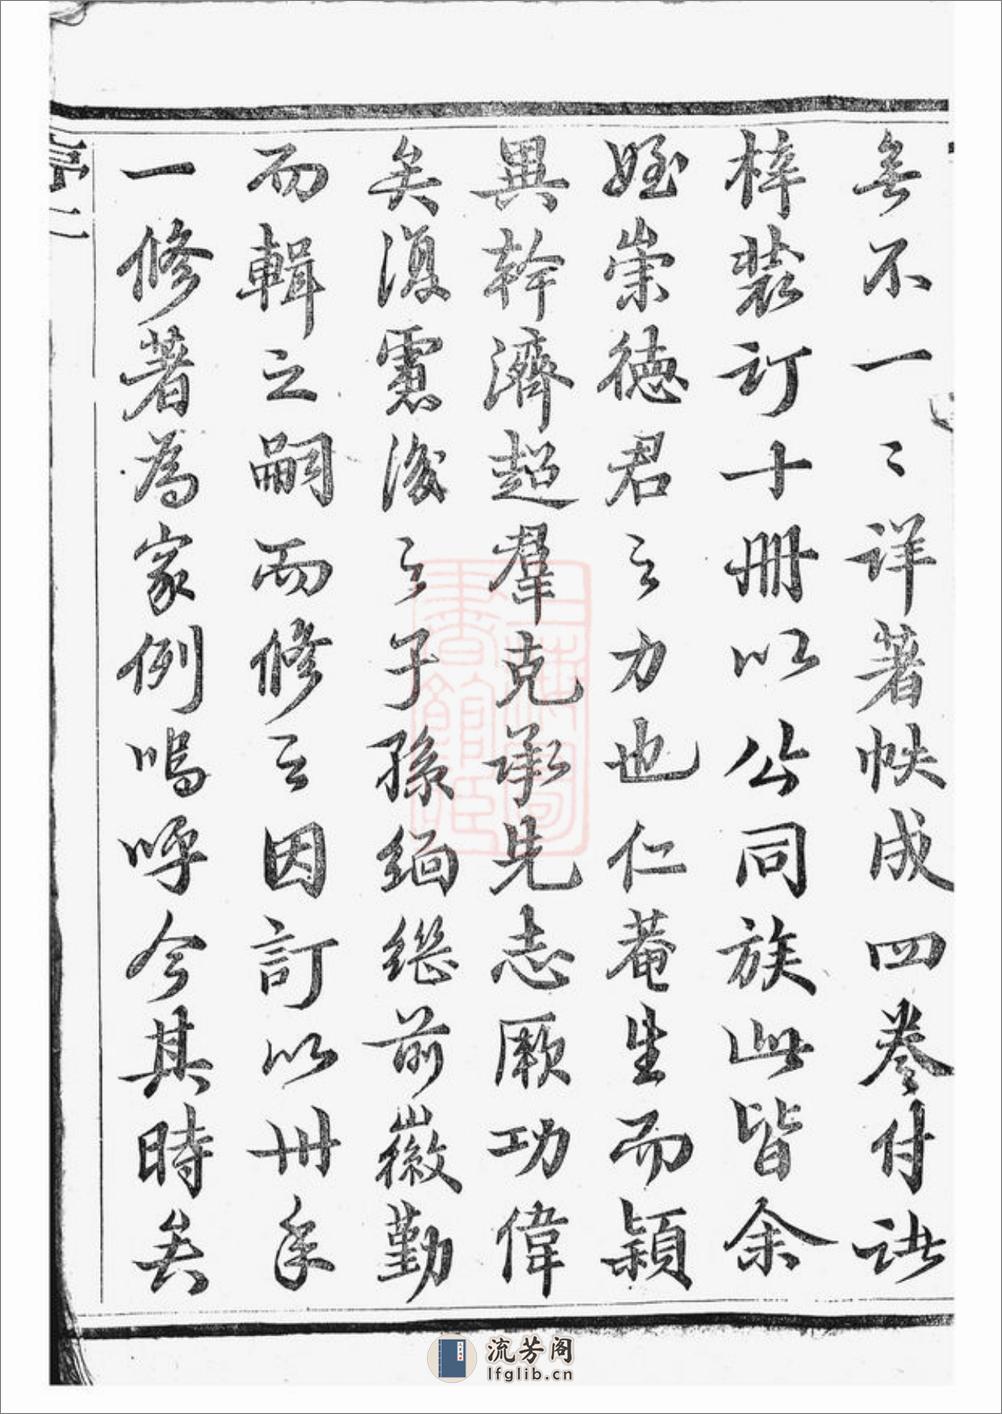 無不一〻詳著帙成四卷付諸
梓裝订十冊以公同族此皆余
姪崇德君之力也仁菴生而穎
異幹濟超羣克承先志厥功偉
矣復慮後之子孫緬繼前徽勤
而輯之嗣而修之因訂以卅年
一修著為家例嗚呼今其時矣
序
二
上海圖書館藏
流芳阁
lfglib.cn